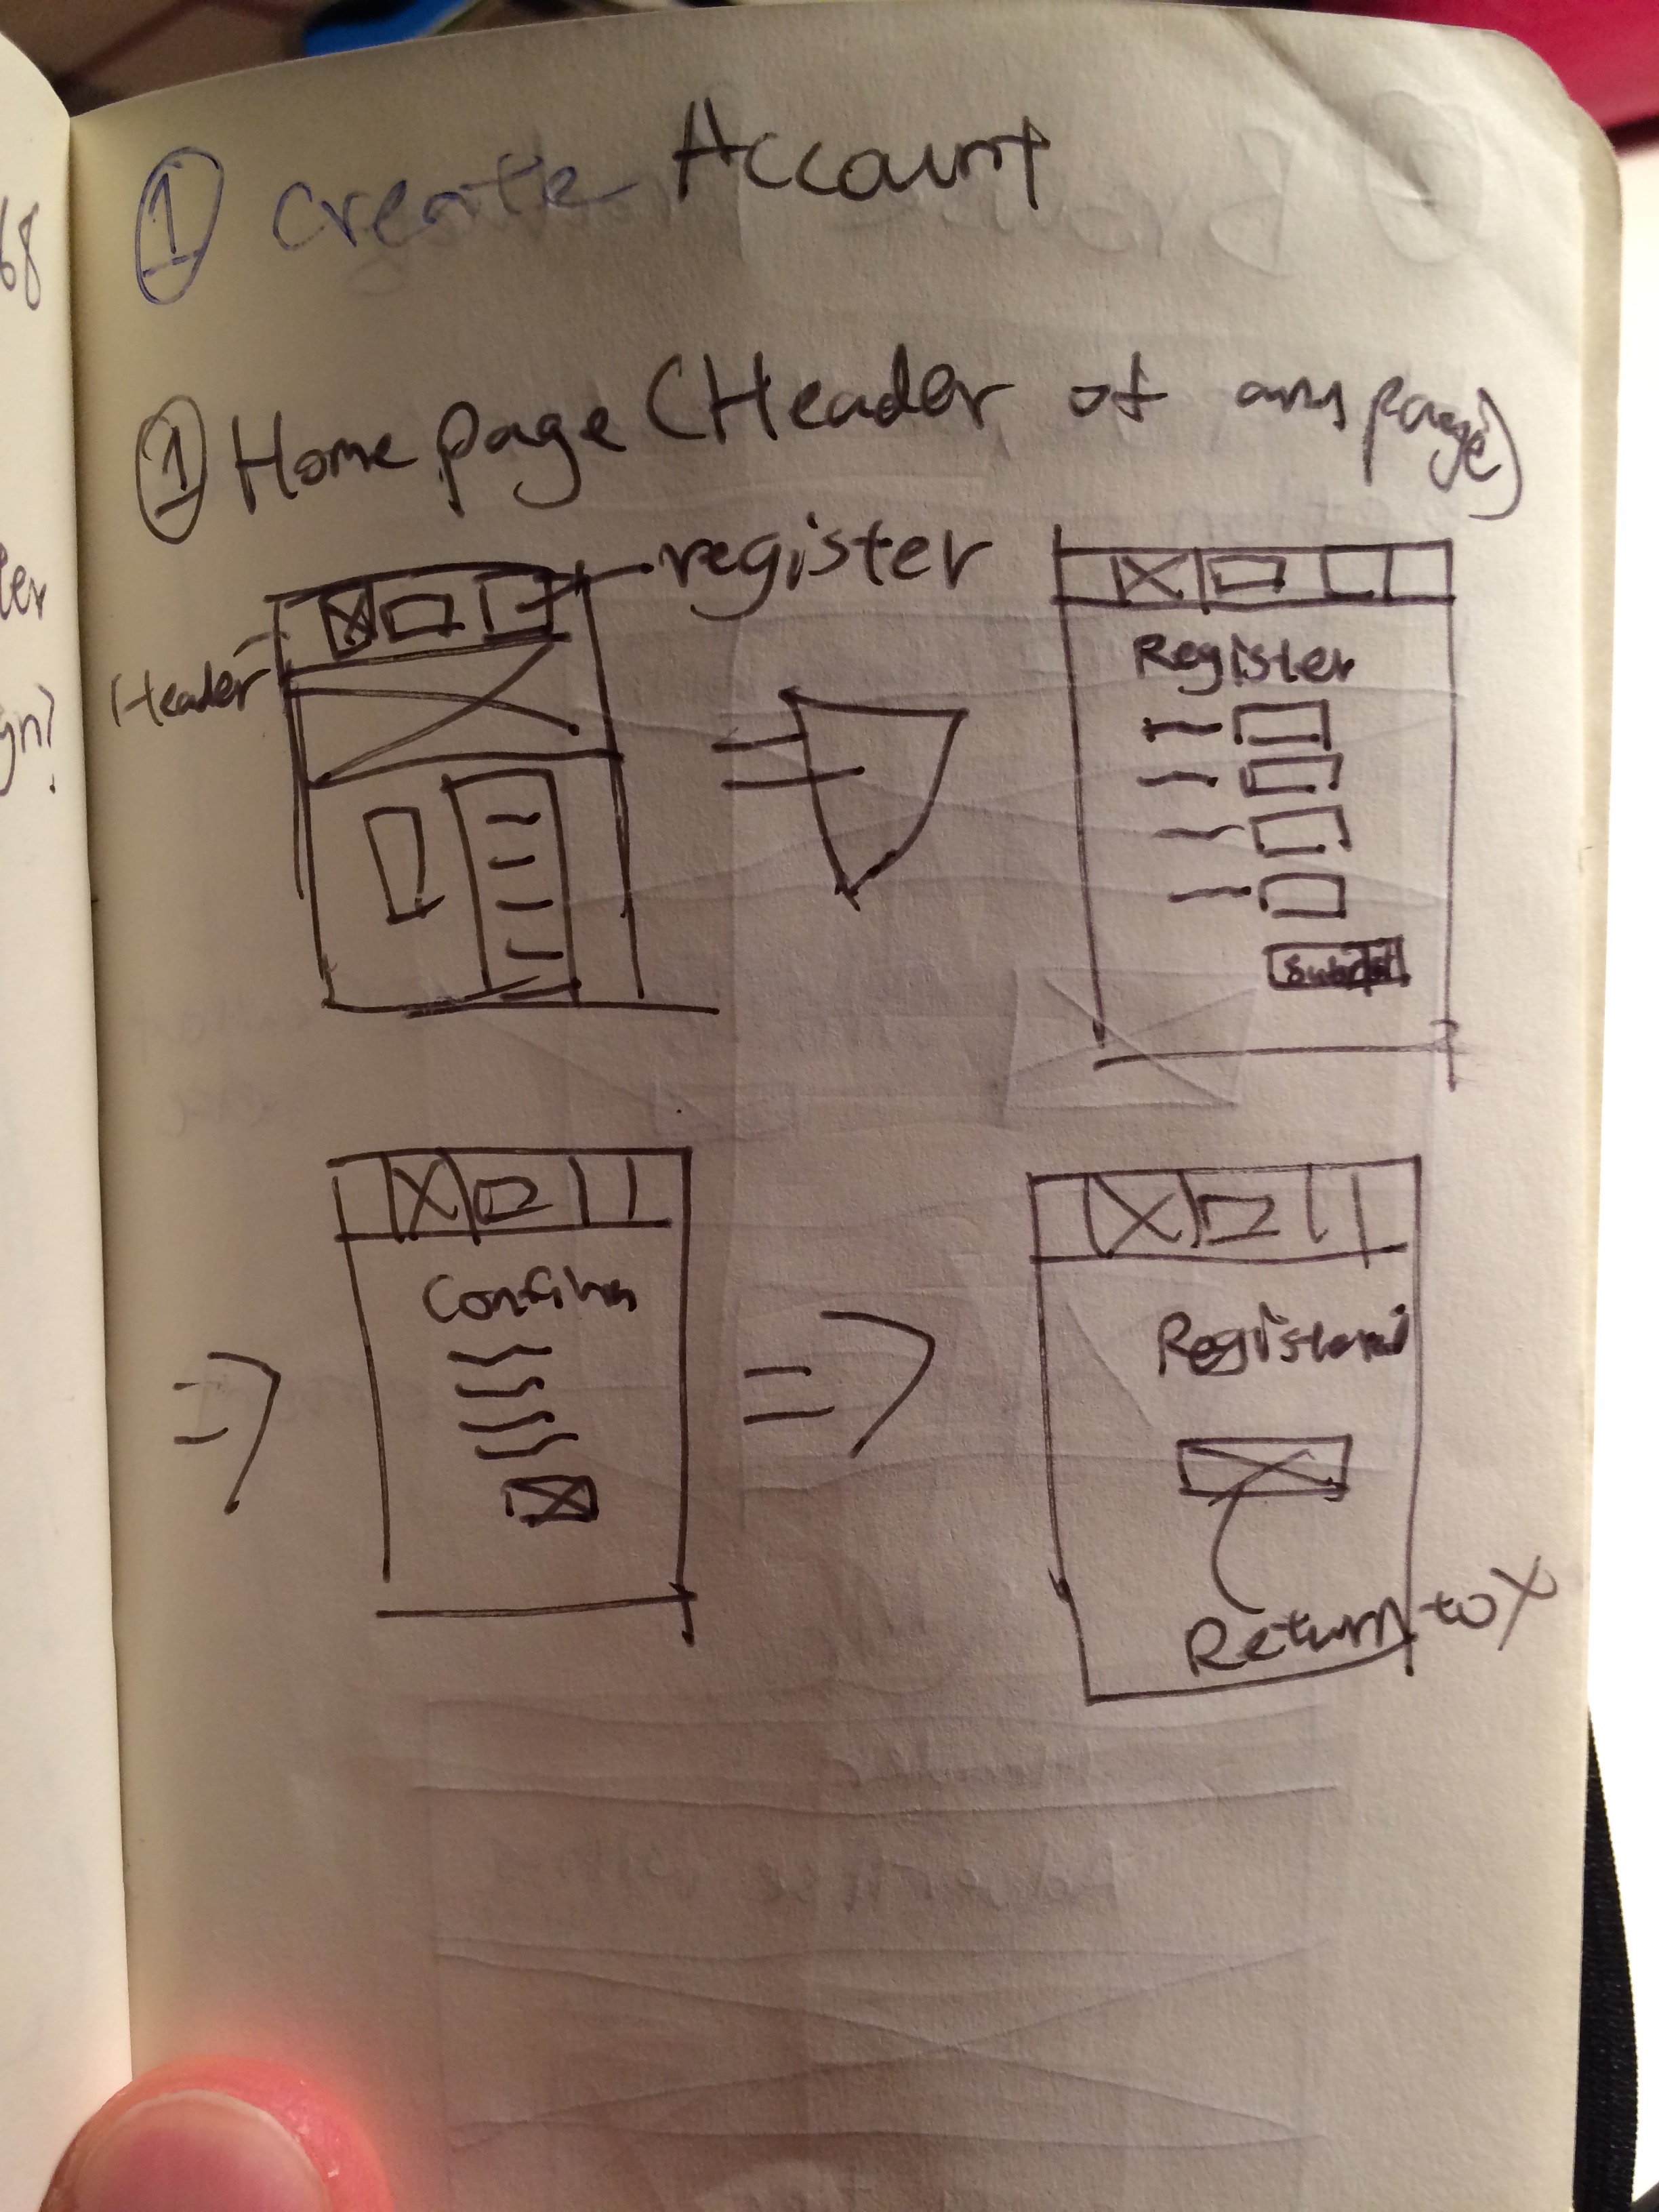 ① Create Account
① Home page (Header of any page)
register
Header
Register
Submit
Confirm
Registered
Return to X
68